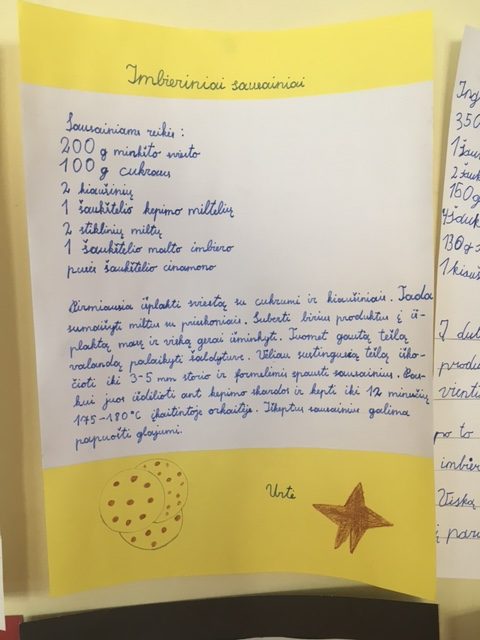 Imbieriniai sausainiai
Sausainiams reikės:
200 g minkšto sviesto
100 g cukraus
2 kiaušinių
1 šaukštelio kepimo miltelių
2 stiklinių miltų
1 šaukštelio malto imbiero
pusės šaukštelio cinamono
Pirmiausia išplakti sviestą su cukrumi ir kiaušiniais. Tada
sumaišyti miltus su prieskoniais. Suberti birius produktus į iš-
plaktą masę ir viską gerai išminkyti. Tuomet gautą tešlą
valandą palaikyti šaldytuve. Vėliau sustingusią tešlą iško-
čioti iki 3-5 mm storio ir formelėmis spausti sausainius. Pas-
kui juos išdėlioti ant kepimo skardos ir kepti iki 12 minučių
175-180°C įkaitintoje orkaitėje. Iškeptus sausainius galima
papuošti glajumi.
Urtė
Ing
350
1 šau
2 šauk
150 g
130 g
1 kiauš
Į
produ
vienti
po to
imbier
Viską
į